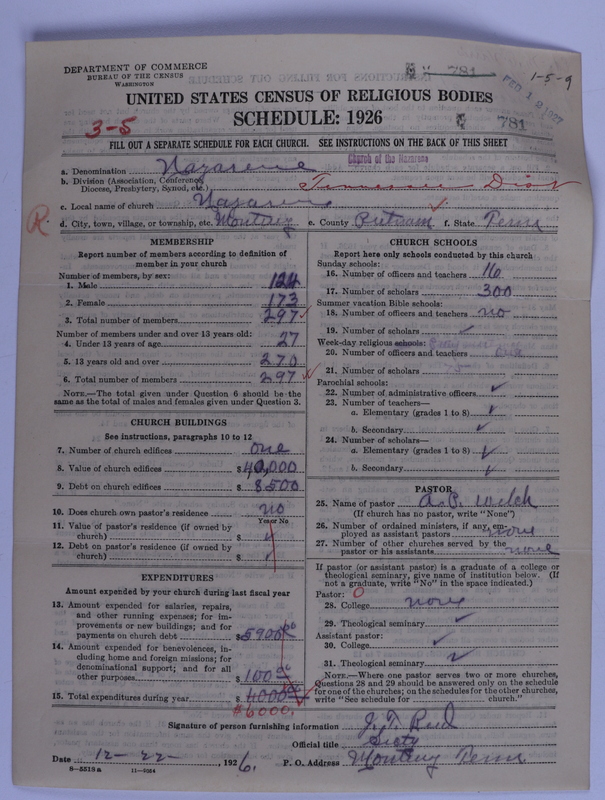 DEPARTMENT OF COMMERCE
BUREAU OF THE CENSUS
WASHINGTON
781
FEB 12 1927
1-5-9
UNITED STATES CENSUS OF RELIGIOUS BODIES
SCHEDULE: 1926
3-5
781
FILL OUT A SEPARATE SCHEDULE FOR EACH CHURCH. SEE INSTRUCTIONS ON THE BACK OF THIS SHEET
Church of the Nazarene
a. Denomination Nazarene
b. Division (Association, Conference, Diocese, Presbytery, Synod, etc.) Tennessee Dist
c. Local name of church Nazarene
R.
d. City, town, village, or township, etc. Monterey e. County Putnam f. State Tenn
MEMBERSHIP
Report number of members according to definition of
member in your church
Number of members, by sex:
1. Male 124
2. Female 173
3. Total number of members 297
Number of members under and over 13 years old:
4. Under 13 years of age 27
5. 13 years old and over 270
6. Total number of members 297
NOTE.—The total given under Question 6 should be
same as the total of males and females given under Question 3.
CHURCH BUILDINGS
See instructions, paragraphs 10 to 12
7. Number of church edifices one
8. Value of church edifices $40,000
9. Debt on church edifices $8500
10. Does church own pastor's residence? no
Yes or No
11. Value of pastor's residence (if owned by
church) $
12. Debt on pastor's residence (if owned by
church) $
EXPENDITURES
Amount expended by your church during last fiscal year
13. Amount expended for salaries, repairs,
and other running expenses; for im-
provements or new buildings; and for
payments on church debt $5900
14. Amount expended for benevolences, in-
cluding home and foreign missions; for
denominational support; and for all
other purposes $100
15. Total expenditures during year $4000
$6000.
CHURCH SCHOOLS
Report here only schools conducted by this church
Sunday schools:
16. Number of officers and teachers 16
17. Number of scholars 300
Summer vacation Bible schools:
18. Number of officers and teachers no
19. Number of scholars ✓
Week-day religious schools:
20. Number of officers and teachers
21. Number of scholars
Parochial schools:
22. Number of administrative officers ✓
23. Number of teachers—
a. Elementary (grades 1 to 8) ✓
b. Secondary ✓
24. Number of scholars—
a. Elementary (grades 1 to 8) ✓
b. Secondary ✓
PASTOR
25. Name of pastor A. P. Welch
(If church has no pastor, write "None")
26. Number of ordained ministers, if any, em-
ployed as assistant pastors none
27. Number of other churches served by the
pastor or his assistants none
If pastor (or assistant pastor) is a graduate of a college or
theological seminary, give name of institution below. (If
not a graduate, write "No" in the space indicated.)
Pastor: 0
28. College none
29. Theological seminary ✓
Assistant pastor:
30. College ✓
31. Theological seminary ✓
NOTE.—Where one pastor serves two or more churches,
Questions 28 and 29 should be answered only on the schedule
for one of the churches; on the schedules for the other churches,
write "See schedule for church."
Signature of person furnishing information J. T. Reid
Official title Secty
Date 12-22-, 1926. P. O. Address Monterey Tenn
8-5518a 11-9054